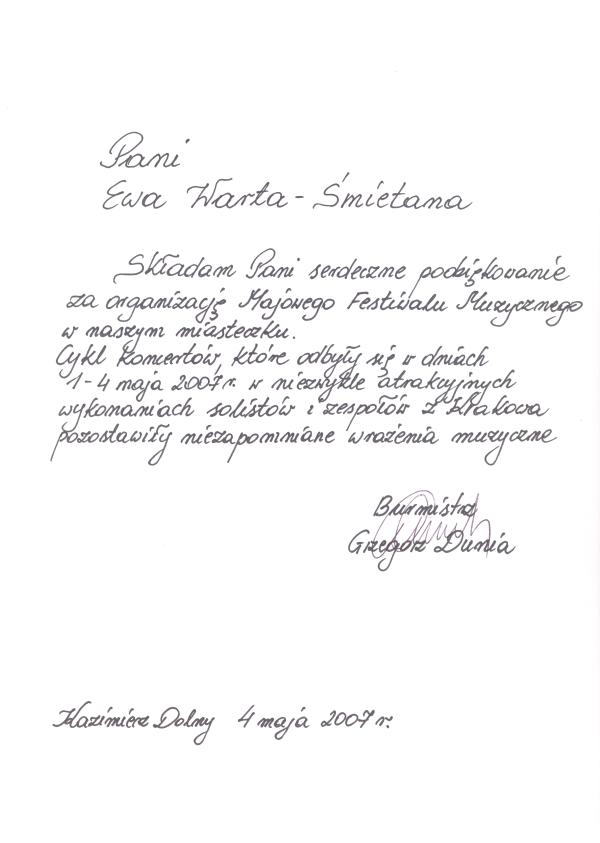 Pani
Ewa Warta-Śmietana
Składam Pani serdeczne podziękowanie
za organizację Majowego Festiwalu Muzycznego
w naszym miasteczku.
Cykl koncertów, które odbyły się w dniach
1-4 maja 2007 r. w niezwykle atrakcyjnych
wykonaniach solistów i zespołów z Krakowa
pozostawiły niezapomniane wrażenia muzyczne
Burmistrz
Grzegorz Dunia
Kazimierz Dolny 4 maja 2007 r.